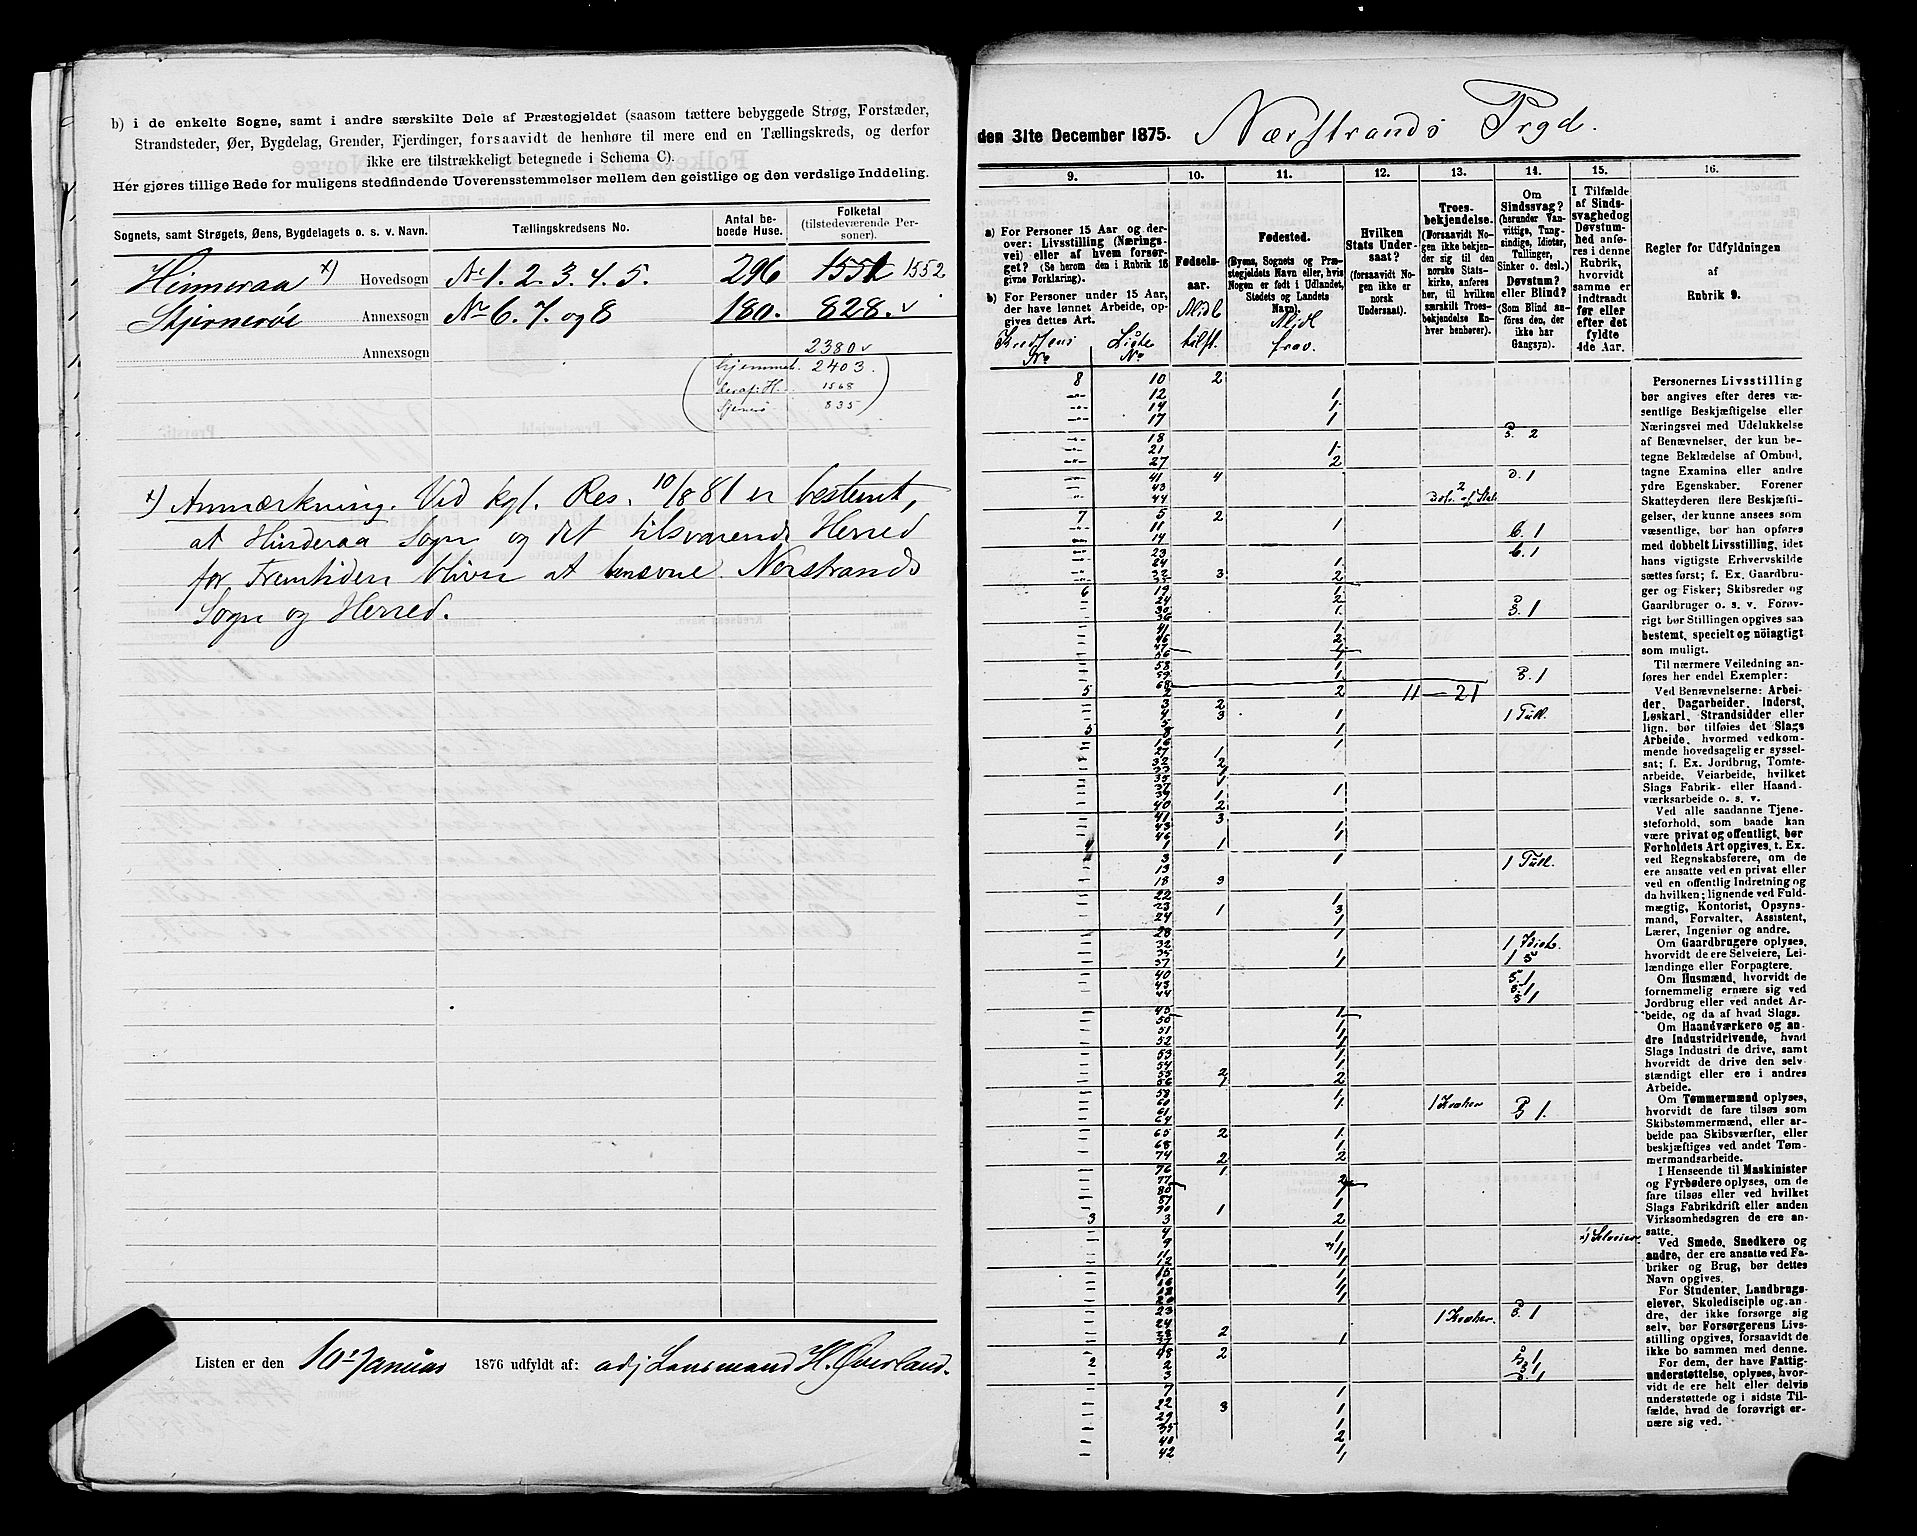 b) i de enkelte Sogne, samt i andre særskilte Dele af Præstegjeldet (saasom tættere bebyggede Strøg, Forstæder,
Strandsteder, Øer, Bygdelag, Grender, Fjerdinger, forsaavidt de henhøre til mere end en Tællingskreds, og derfor
ikke ere tilstrækkeligt betegnede i Schema C).
Her gjøres tillige Rede for muligens stedfindende Uoverensstemmelser mellem den geistlige og den verdslige Inddeling.
Sognets, samt Strøgets, Øens, Bygdelagets o. s. v. Navn.
Tællingskredsens No.
Antal be-
boede Huse.
Folketal
(tilstedeværende Per-
soner).
Hinneraa x) Hovedsogn No 1. 2. 3. 4. 5. 296 1552
Stjernerøe Annexsogn No 6. 7. og 8 180. 828. v
Annexsogn 2380 v
hjemmeh. 2403.
deraf: H. 1568
Sjernerø 835
x) Anmærkning. Ved kgl. Res. 10/8 81 er bestemt,
at Hinderaa Sogn og det tilsvarende Herred
for Fremtiden bliver at benævne Nerstrands
Sogn og Herred.
Listen er den 10de Januar 1876 udfyldt af: adj Lensmand H. Øverland.
den 31te December 1875. Nærstrands Prgd.
9. 10. 11. 12. 13. 14. 15. 16.
a) For Personer 15 Aar og der-
over: Livsstilling (Nærings-
vei) eller af hvem forsør-
get? (Se herom den i Rubrik 16
givne Forklaring).
b) For Personer under 15 Aar,
der have lønnet Arbeide, op-
gives dettes Art.
Kredsens No Liste No
Fødsels-
aar.
Midl tilst.
Fødested.
(Byens, Sognets og Præ-
stegjeldets Navn eller, hvis
Nogen er født i Udlandet,
Stedets og Landets
Navn).
Midl frav.
Hvilken
Stats Under-
saat?
(forsaavidt No-
gen ikke er
norsk
Undersaat).
Troes-
bekjendelse.
(Forsaavidt No-
gen ikke bekjen-
der sig til den
norske Stats-
kirke, anføres
her, til hvilken
særskilt Troes-
bekjendelse En-
hver henhører).
Om
Sindssvag?
(herunder Van-
vittige, Tung-
sindige, Idioter,
Tullinger,
Sinker o. desl.)
Døvstum?
eller Blind?
(Som Blind an-
føres den, der
ikke har
Gangsyn).
I Tilfælde
af Sinds-
svaghedog
Døvstum-
hed anfø-
res i denne
Rubrik,
hvorvidt
samme er
indtraadt
før eller
efter det
fyldte
4de Aar.
Regler for Udfyldningen
af
Rubrik 9.
8 10 2
12 1
14 1
17 1
18 2
21 1
27 2
41 4 D. 1
43 2
44
7 5 2
11 1
14 1
23 1
24 1
32 3 2
6 19 1
24 2
30 1
36 1
41 1
46 2
47
56
58 1
59 1
68 1
5 2 2 11 — 21
3 2
4 3 1 1 Tull.
5
8 1
16 1
27 1
32 2
35
37 1
39 1
40 2
41 3
43 1
46 1
4 1 1
3 1 1 Tull.
13
18 3
22 1
23 1 3
24 1
28 1
32 1 Idiot.
35 1 1 5
37 1
40 1
43 1
44 1
45 1
50
51 1
52 1
53 1
54 1
55 2 1
56 1 2
58 1
60 1 1 Kvæker
61 1.
64
65 2 1
68 1
74 2 2
76 1
77 2
80
87 1
90 1 1
3 3 2
4 1
9 1
11 1
12 1
15 1
16 1
18 1
20 1
23 1 Kvæker. 1
24
28 2
37 1
48 2 1
2 2 1
3 1
7 1
22 3 1
29 1
35 1
40 2
42 1
Personernes Livsstilling
bør angives efter deres væ-
sentlige Beskjæftigelse eller
Næringsvei med Udelukkelse
af Benævnelser, der kun be-
tegne Beklædelse af Ombud,
tagne Examina eller andre
ydre Egenskaber. Forener
Skatteyderen flere Beskjæfti-
gelser, der kunne ansees som
væsentlige, bør han opføres
med dobbelt Livsstilling, idet
hans vigtigste Erhvervskilde
sættes først; f. Ex. Gaardbru-
ger og Fisker; Skibsreder og
Gaardbruger o. s. v. Forøv-
rigt bør Stillingen opgives saa
bestemt, specielt og nöiagtigt
som muligt.
Til nærmere Veiledning an-
føres her endel Exempler:
Ved Benævnelserne: Arbei-
der, Dagarbeider, Inderst,
Løskarl, Strandsidder eller
lign. bør tilføies det Slags
Arbeide, hvormed vedkom-
mende hovedsagelig er syssel-
sat; f. Ex. Jordbrug, Tomte-
arbeide, Veiarbeide, hvilket
Slags Fabrik- eller Haand-
værksarbeide o. s. v.
Ved alle saadanne Tjene-
steforhold, som baade kan
være privat og offentligt, bør
Forholdets Art opgives, t. Ex.
ved Regnskabsførere, om de
ere ansatte ved en privat eller
ved en offentlig Indretning og
da hvilken; lignende ved Fuld-
mægtig, Kontorist, Opsyns-
mand, Forvalter, Assistent,
Lærer, Ingeniør og andre.
Om Gaardbrugere oplyses,
hvorvidt de ere Selveiere, Lei-
lændinge eller Forpagtere.
Om Husmænd, hvorvidt de
fornemmelig ernære sig ved
Jordbrug eller ved andet Ar-
beide, og da af hvad Slags.
Om Haandværkere og an-
dre Industridrivende, hvad
Slags Industri de drive, samt
hvorvidt de drive den selv-
stændigt eller ere i andres
Arbeide.
Om Tømmermænd oplyses,
hvorvidt de fare tilsøs som
Skibstømmermænd, eller ar-
beide paa Skibsværfter, eller
beskjæftiges ved andet Tøm-
mermandsarbeide.
I Henseende til Maskinister
og Fyrbødere oplyses, om de
fare tilsøs eller ved hvilket
Slags Fabrikdrift eller anden
Virksomhedsgren de ere an-
satte.
Ved Smede, Snedkere og
andre, der ere ansatte ved Fa-
briker og Brug, bør dettes
Navn opgives.
For Studenter, Landbrugs-
elever, Skoledisciple og an-
dre, der ikke forsørge sig
selv, bør Forsørgerens Livs-
stilling opgives, forsaavidt de
ikke bo sammen med denne.
For dem, der have Fattig-
understøttelse, oplyses, hvor-
vidt de ere helt eller delvis
understøttede og i sidste Til-
fælde, hvad de forøvrigt er-
nære sig ved.